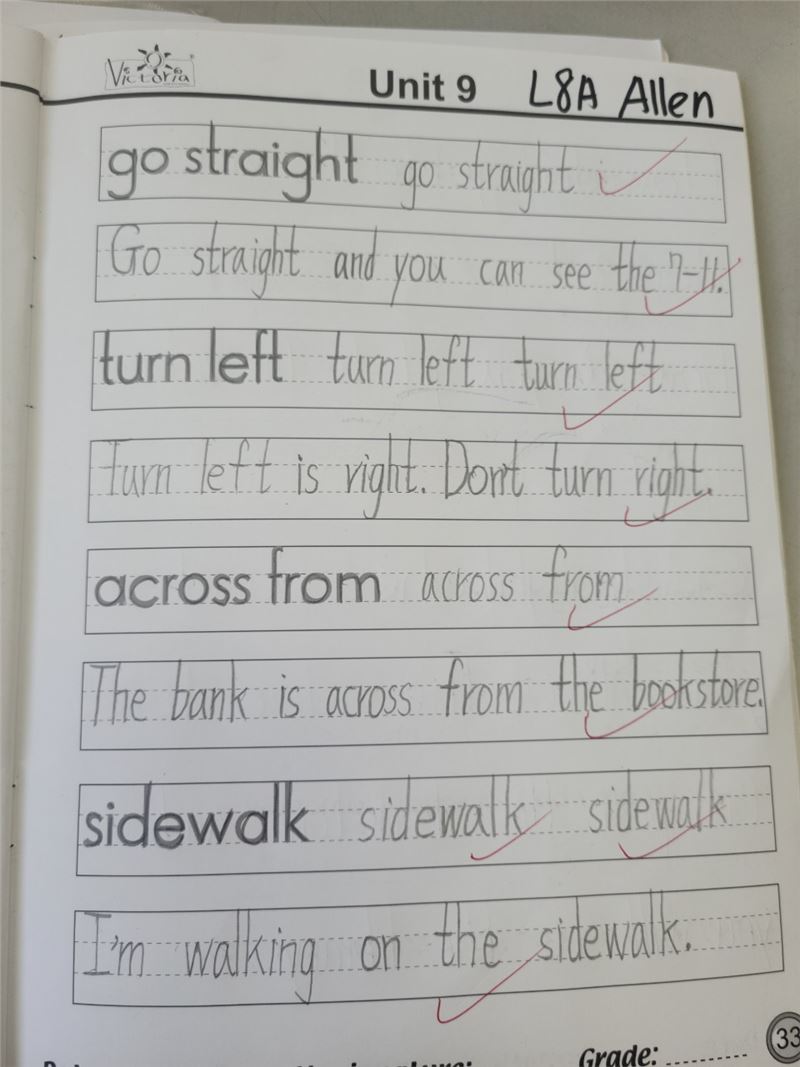 Victoria
Unit 9 L8A Allen
go straight go straight
Go straight and you can see the 7-11.
turn left turn left turn left
Turn left is right. Don't turn right.
across from across from
The bank is across from the bookstore.
sidewalk sidewalk sidewalk
I'm walking on the sidewalk.
Grade:
33